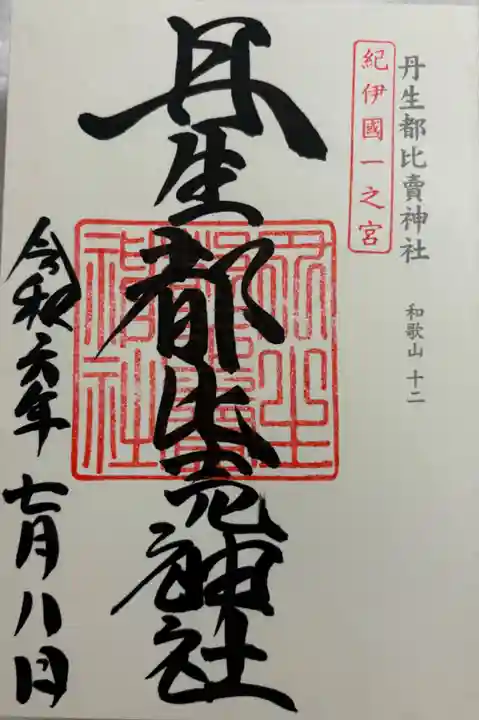 丹生都比賣神社 和歌山 十二
紀伊國一之宮
丹生都比売神社
丹生都比賣神社
令和元年七月八日